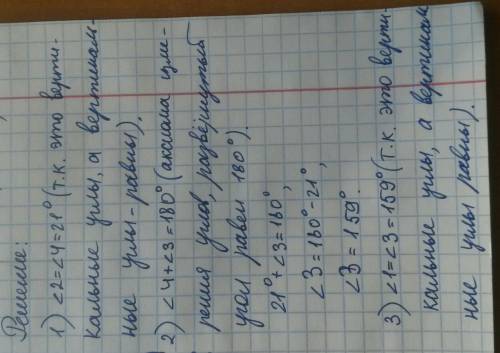 Решение:
1) ∠2=∠4=21° (т.к. это верти-
кальные углы, а вертикаль-
ные углы - равны).
2) ∠4+∠3=180° (аксиома изме-
рения углов, развёрнутый
угол равен 180°).
21°+∠3=180°,
∠3=180°-21°,
∠3=159°.
3) ∠1=∠3=159° (т.к. это верти-
кальные углы, а вертикаль
ные углы равны).